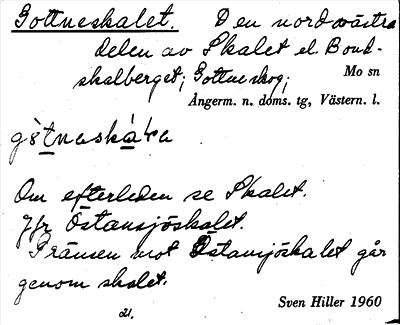 Gottneskalet. Den nordvästra
delen av Skalet el. Bond-
skalberget; Gottneskog;
Mo sn
Ångerm. n. doms. tg, Västern. l.
Om efterleden se Skalet.
Jfr Östansjöskalet.
Gränsen mot Östansjöskalet går
genom skalet.
Sven Hiller 1960